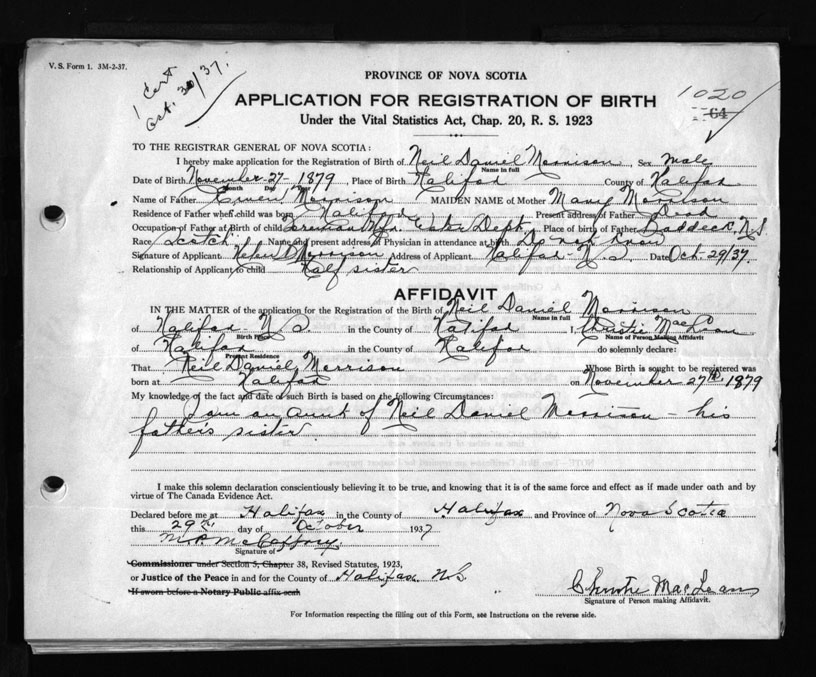 V. S. Form 1. 3M-2-37.
1 Cert
Oct. 30/37.
PROVINCE OF NOVA SCOTIA
1020
64
APPLICATION FOR REGISTRATION OF BIRTH
Under the Vital Statistics Act, Chap. 20, R. S. 1923
TO THE REGISTRAR GENERAL OF NOVA SCOTIA:
I hereby make application for the Registration of Birth of Neil Daniel Morrison, Sex Male
Name in full
Date of Birth November 27 - 1879, Place of Birth Halifax County of Halifax
Month Day Year
Name of Father Owen Morrison MAIDEN NAME of Mother Mary Morrison
Residence of Father when child was born Halifax Present address of Father Dead
Occupation of Father at Birth of child Foreman Water Dept. Place of birth of Father Baddeck, N.S.
Race Scotch Name and present address of Physician in attendance at birth Do not know
Signature of Applicant Helen Morrison Address of Applicant Halifax N.S. Date Oct. 29/37.
Relationship of Applicant to child Half sister
AFFIDAVIT
IN THE MATTER of the application for the Registration of the Birth of Neil Daniel Morrison
Name in full
of Halifax N.S. in the County of Halifax I, Christie MacLean
Birth Place Name of Person Making Affidavit
of Halifax in the County of Halifax do solemnly declare:
Present Residence
That Neil Daniel Morrison Whose Birth is sought to be registered was
born at Halifax on November 27th 1879
My knowledge of the fact and date of such Birth is based on the following Circumstances:
I am an aunt of Neil Daniel Morrison - his
father's sister.
I make this solemn declaration conscientiously believing it to be true, and knowing that it is of the same force and effect as if made under oath and by
virtue of The Canada Evidence Act.
Declared before me at Halifax in the County of Halifax and Province of Nova Scotia
this 29th day of October 1937
Signature of
Commissioner under Section 5, Chapter 38, Revised Statutes, 1923,
or Justice of the Peace in and for the County of Halifax N.S.
If sworn before a Notary Public affix seal
Christie MacLean
Signature of Person making Affidavit.
For Information respecting the filling out of this Form, see Instructions on the reverse side.